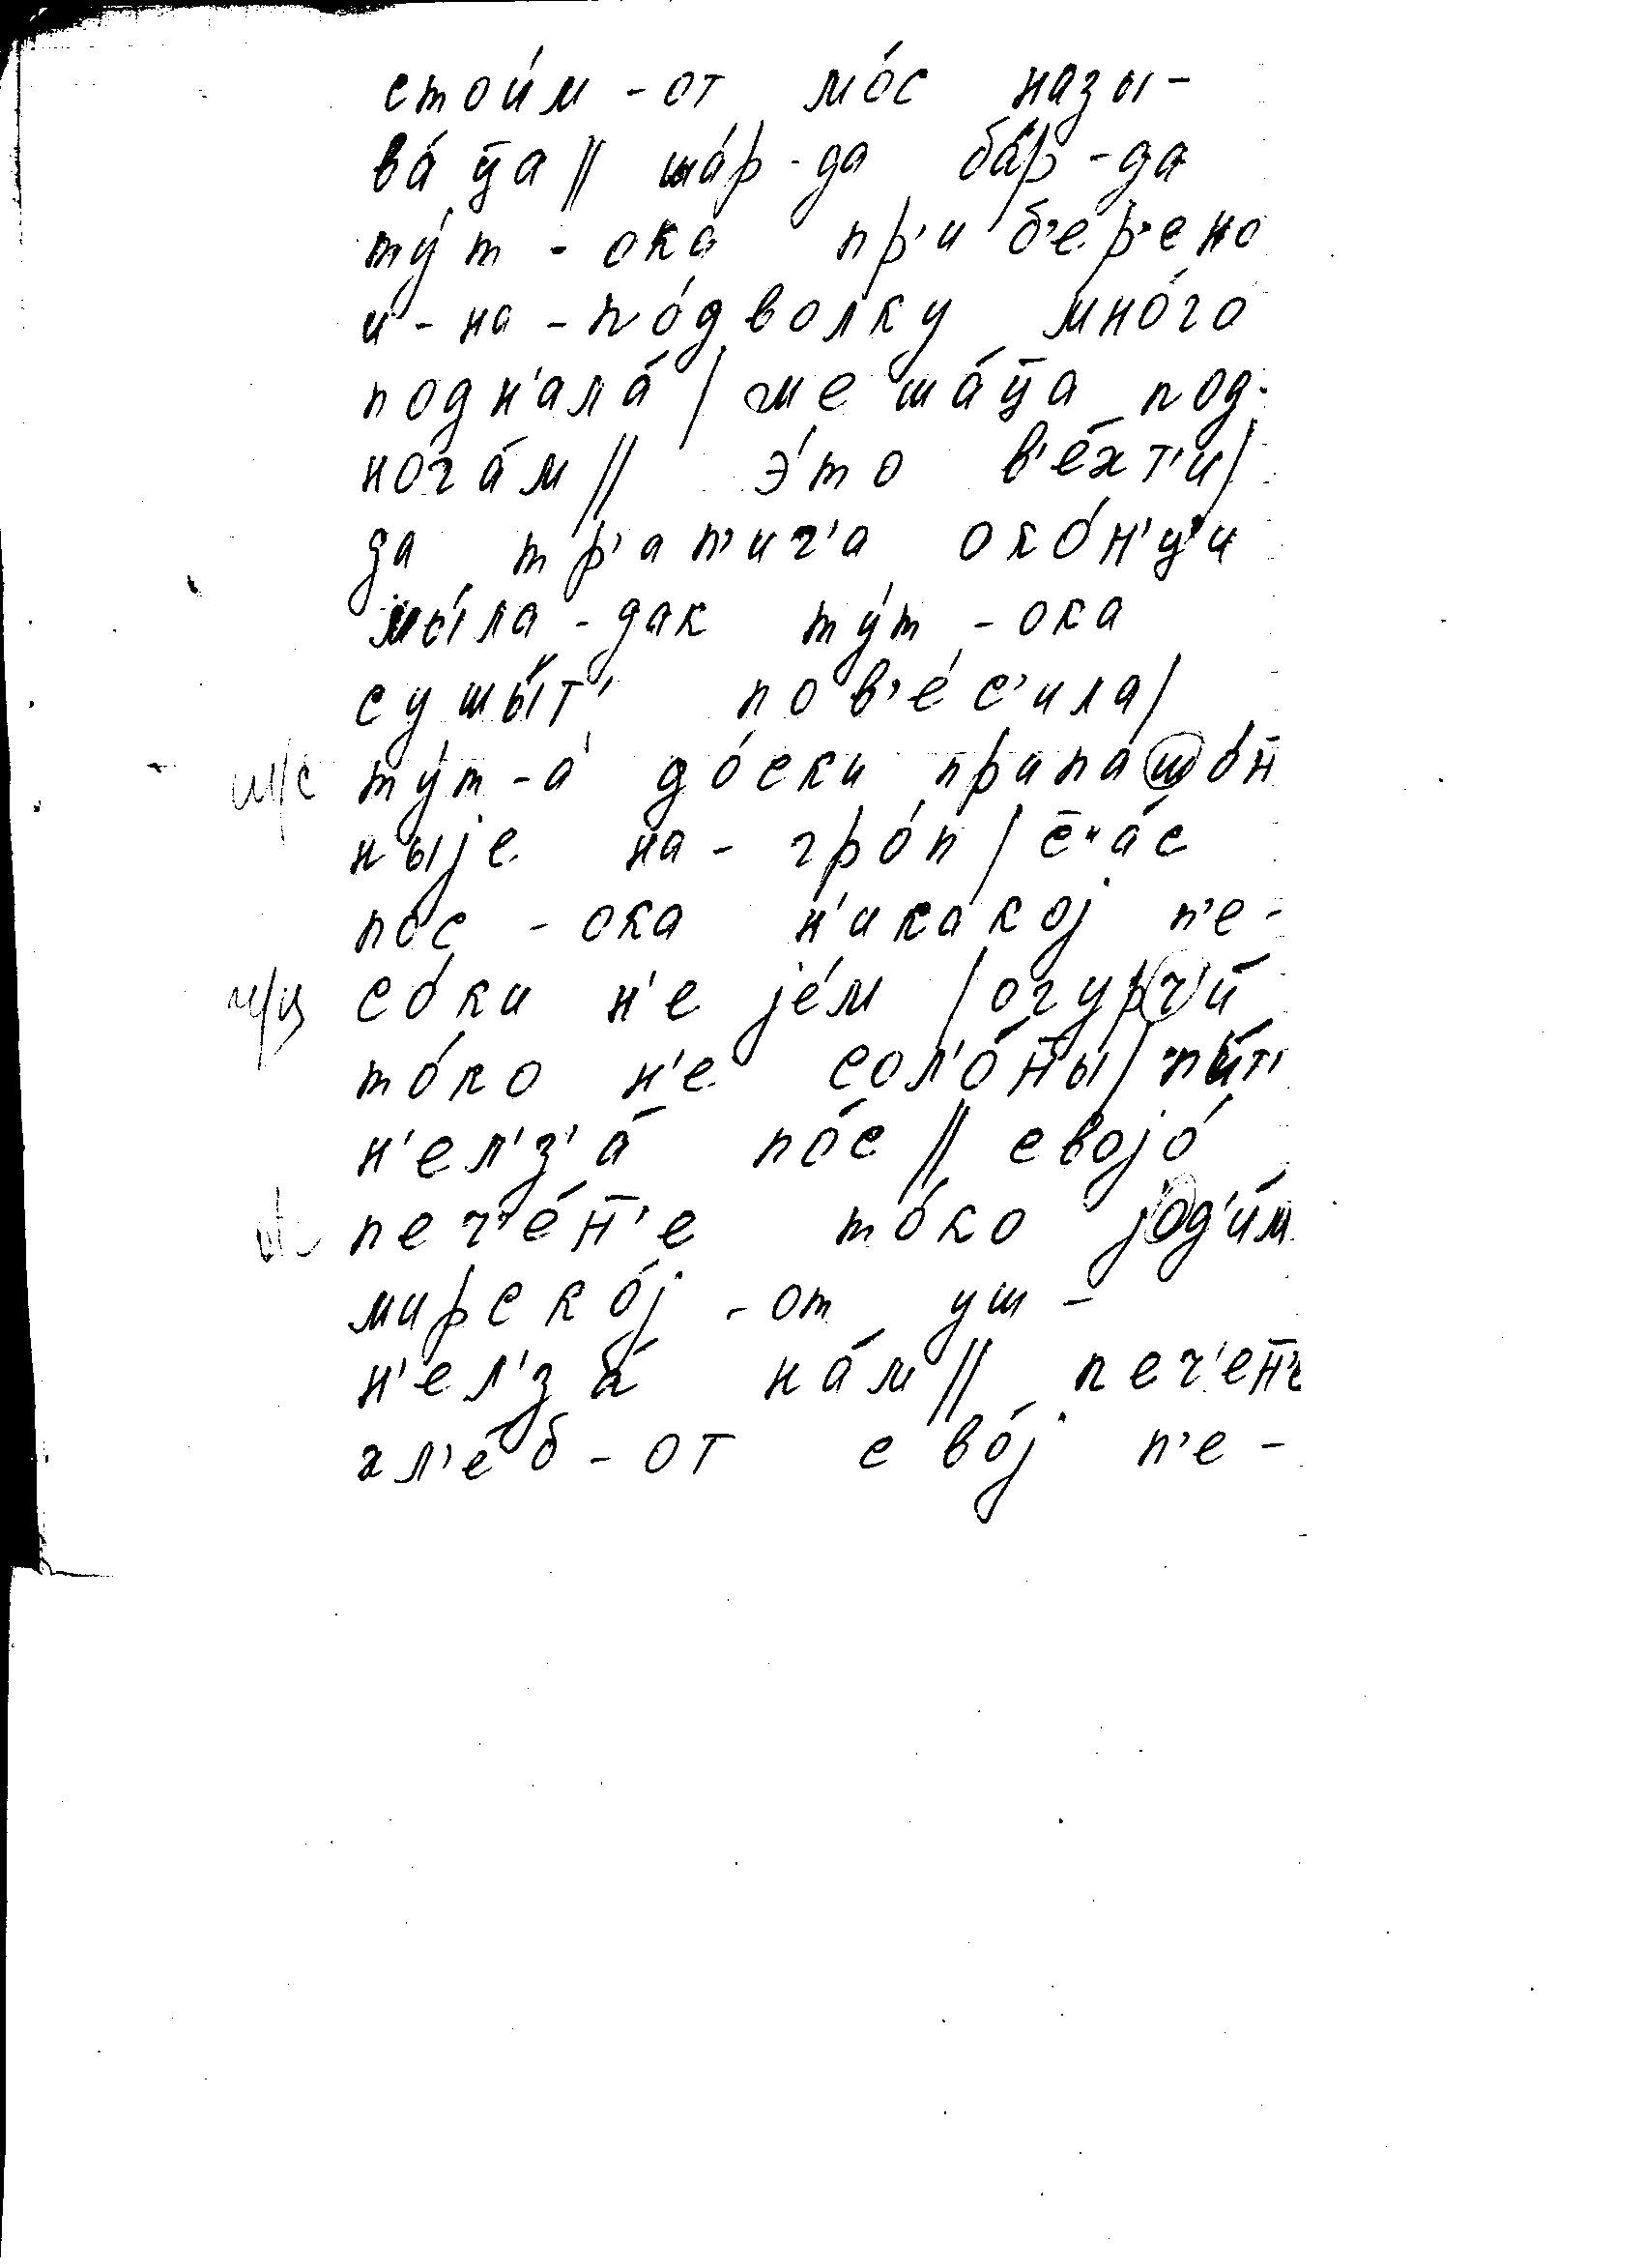 стои́м - от мо́с назы-
ва́ ц̄а // ша́р - да ба́р - да
ту́т - ока пр'и б'ер'ено
и - на - по́дволку мно́го
подн'ала́ / ме ша́ц̄а под-
нога́м // э́то в'е́хт'и /
да тр'ап'ич'а око́н'ц'и
мы́ла - дак ту́т - ока
сушы́т' пов'е́с'ила /
ш/с ту́т - а до́ски припашо́н̄
ныје на - гро́п / с̄ч'а́с
по́с - ока н'икако́ј п'е-
ч/ц со́ки н'е је́м / огурч'и́
то́ко н'е сол'о́н̄ы / п'и́т'
н'ел'з'а́ по́с // својо́
печ'е́н̄'е то́ко јод'и́м
мирско́ј - от уш -
н'ел'з'а́ на́м // печ'ен̄'е
хл'е́б - от сво́ј п'е -